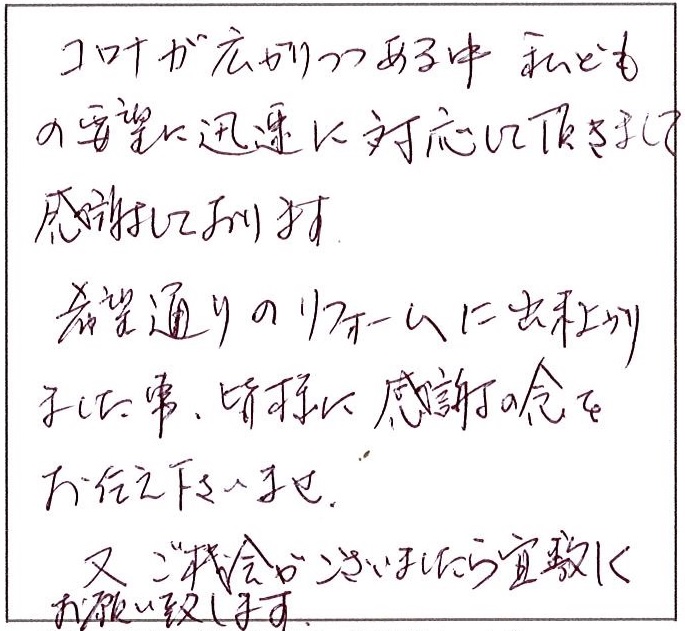 コロナが広がりつつある中 私ども
の要望に迅速に対応して頂きまして
感謝しております.
希望通りのリフォームに出来上がり
ました事、皆様に感謝の念を
お伝え下さいませ.
又ご機会がございましたら宜敷く
お願い致します.